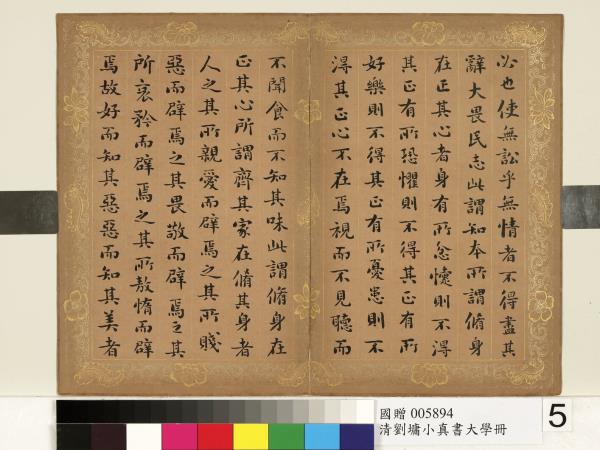 必也使無訟乎無情者不得盡其
辭大畏民志此謂知本所謂脩身
在正其心者身有所忿懥則不得
其正有所恐懼則不得其正有所
好樂則不得其正有所憂患則不
得其正心不在焉視而不見聽而
不聞食而不知其味此謂脩身在
正其心所謂齊其家在脩其身者
人之其所親愛而辟焉之其所賤
惡而辟焉之其畏敬而辟焉之其
所哀矜而辟焉之其所敖惰而辟
焉故好而知其惡惡而知其美者
國贈 005894
清劉墉小真書大學冊
5